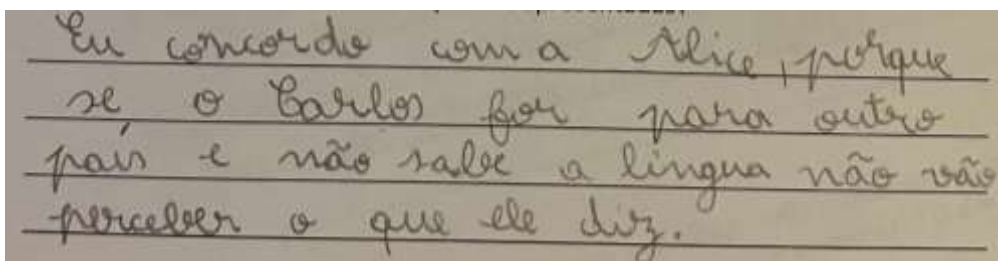 Eu concordo com a Alice, porque
se o Carlos for para outro
país e não sabe a língua não vão
perceber o que ele diz.